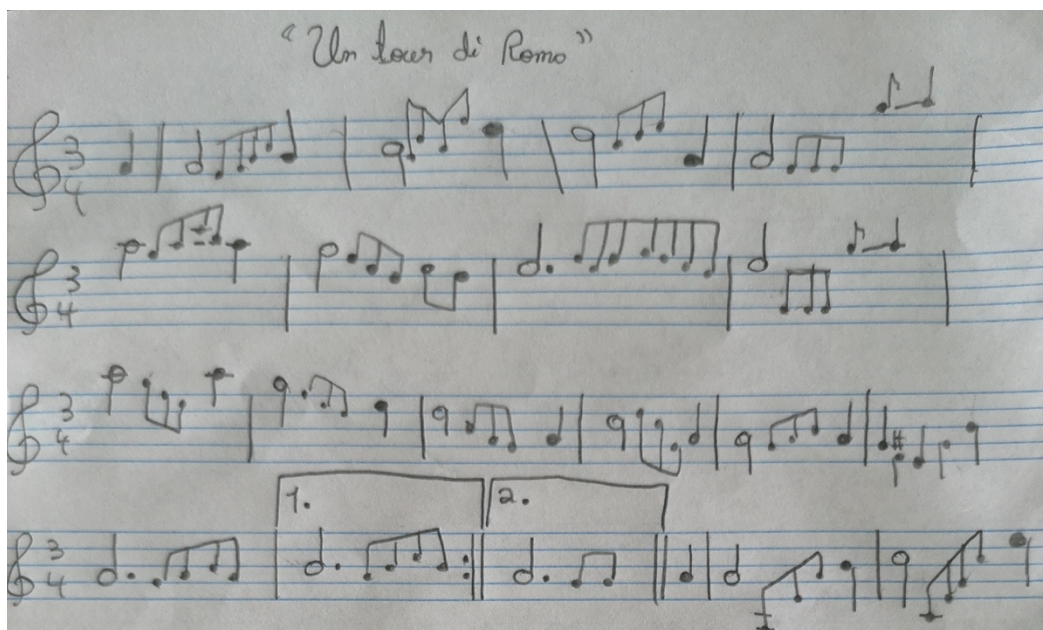 "Un tour di Romo"
3
4
3
4
3
4
1.
2.
3
4